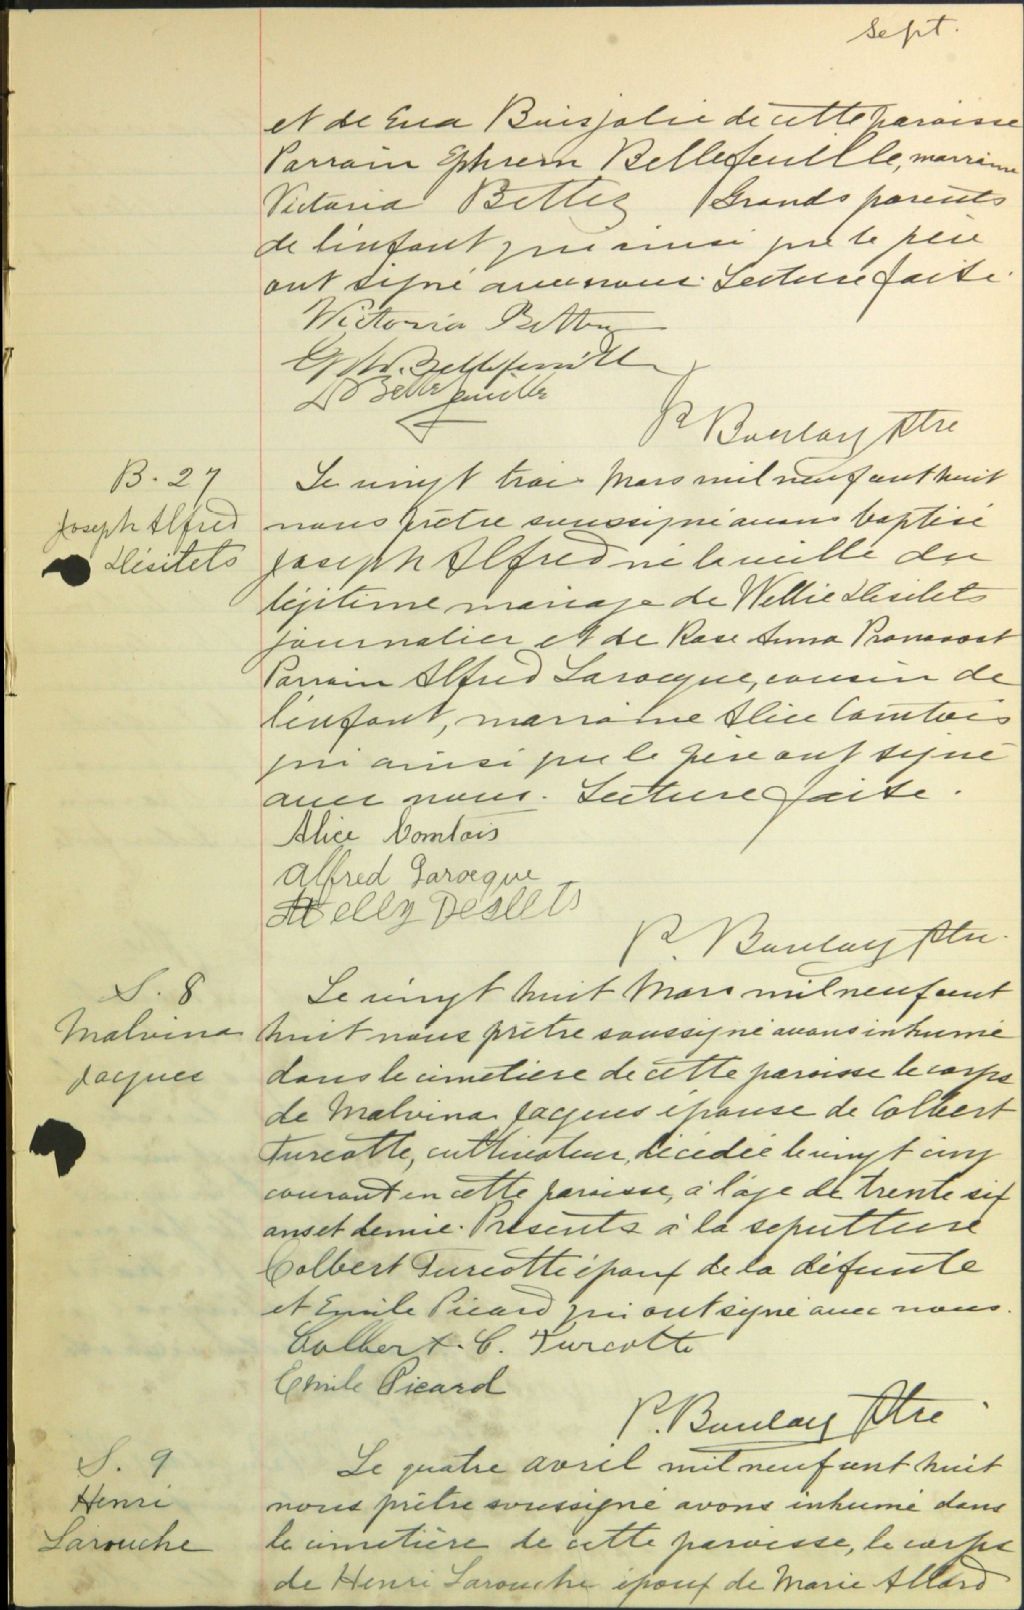 Sept.
et de Eva Boisjolie de cette paroisse
Parrain Ephrem Bellefeuille, marraine
Victoria Bettez Grands parents
de l'enfant qui ainsi que le père
ont signé avec nous. Lecture faite.
Victoria Bettez
Eph. Bellefeuille
D Bellefeuille
P. Boulay Ptre
B. 27
Joseph Alfred
Désilets
Le vingt trois Mars mil neuf cent huit
nous prêtre soussigné avons baptisé
Joseph Alfred né la veille du
légitime mariage de Wellie Désilets
journalier et de Rose Anna Pronovost
Parrain Alfred Larocque, cousin de
l'enfant, marraine Alice Comtois
qui ainsi que le père ont signé
avec nous. Lecture faite.
Alice Comtois
Alfred Larocque
Welly Desilets
P. Boulay Ptre.
S. 8
Malvina
Jacques
Le vingt huit Mars mil neuf cent
huit nous prêtre soussigné avons inhumé
dans le cimetière de cette paroisse le corps
de Malvina Jacques épouse de Colbert
Turcotte, cultivateur, décédée le vingt cinq
courant en cette paroisse, à l'âge de trente six
ans et demie. Présents à la sepulture
Colbert Turcotte époux de la défunte
et Emile Picard qui ont signé avec nous.
Colbert. C. Turcotte
Emile Picard
P. Boulay Ptre
S. 9
Henri
Larouche
Le quatre avril mil neuf cent huit
nous prêtre soussigné avons inhumé dans
le cimetière de cette paroisse, le corps
de Henri Larouche époux de Marie Allard